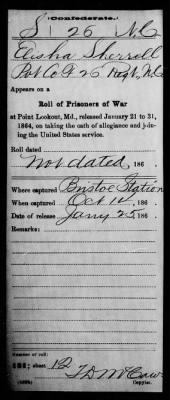 Confederate.
S | 26 | N.C.
Elisha Sherrell
Pvt Co F 26 Regt, N.C.
Appears on a
Roll of Prisoners of War
at Point Lookout, Md., released January 21 to 31,
1864, on taking the oath of allegiance and join-
ing the United States service.
Roll dated
Not dated, 186 .
Where captured Bristoe Station
When captured Oct 14, 186 .
Date of release Jany 25 186 .
Remarks:
Number of roll:
sheet 12
T D McCaw
Copyist.